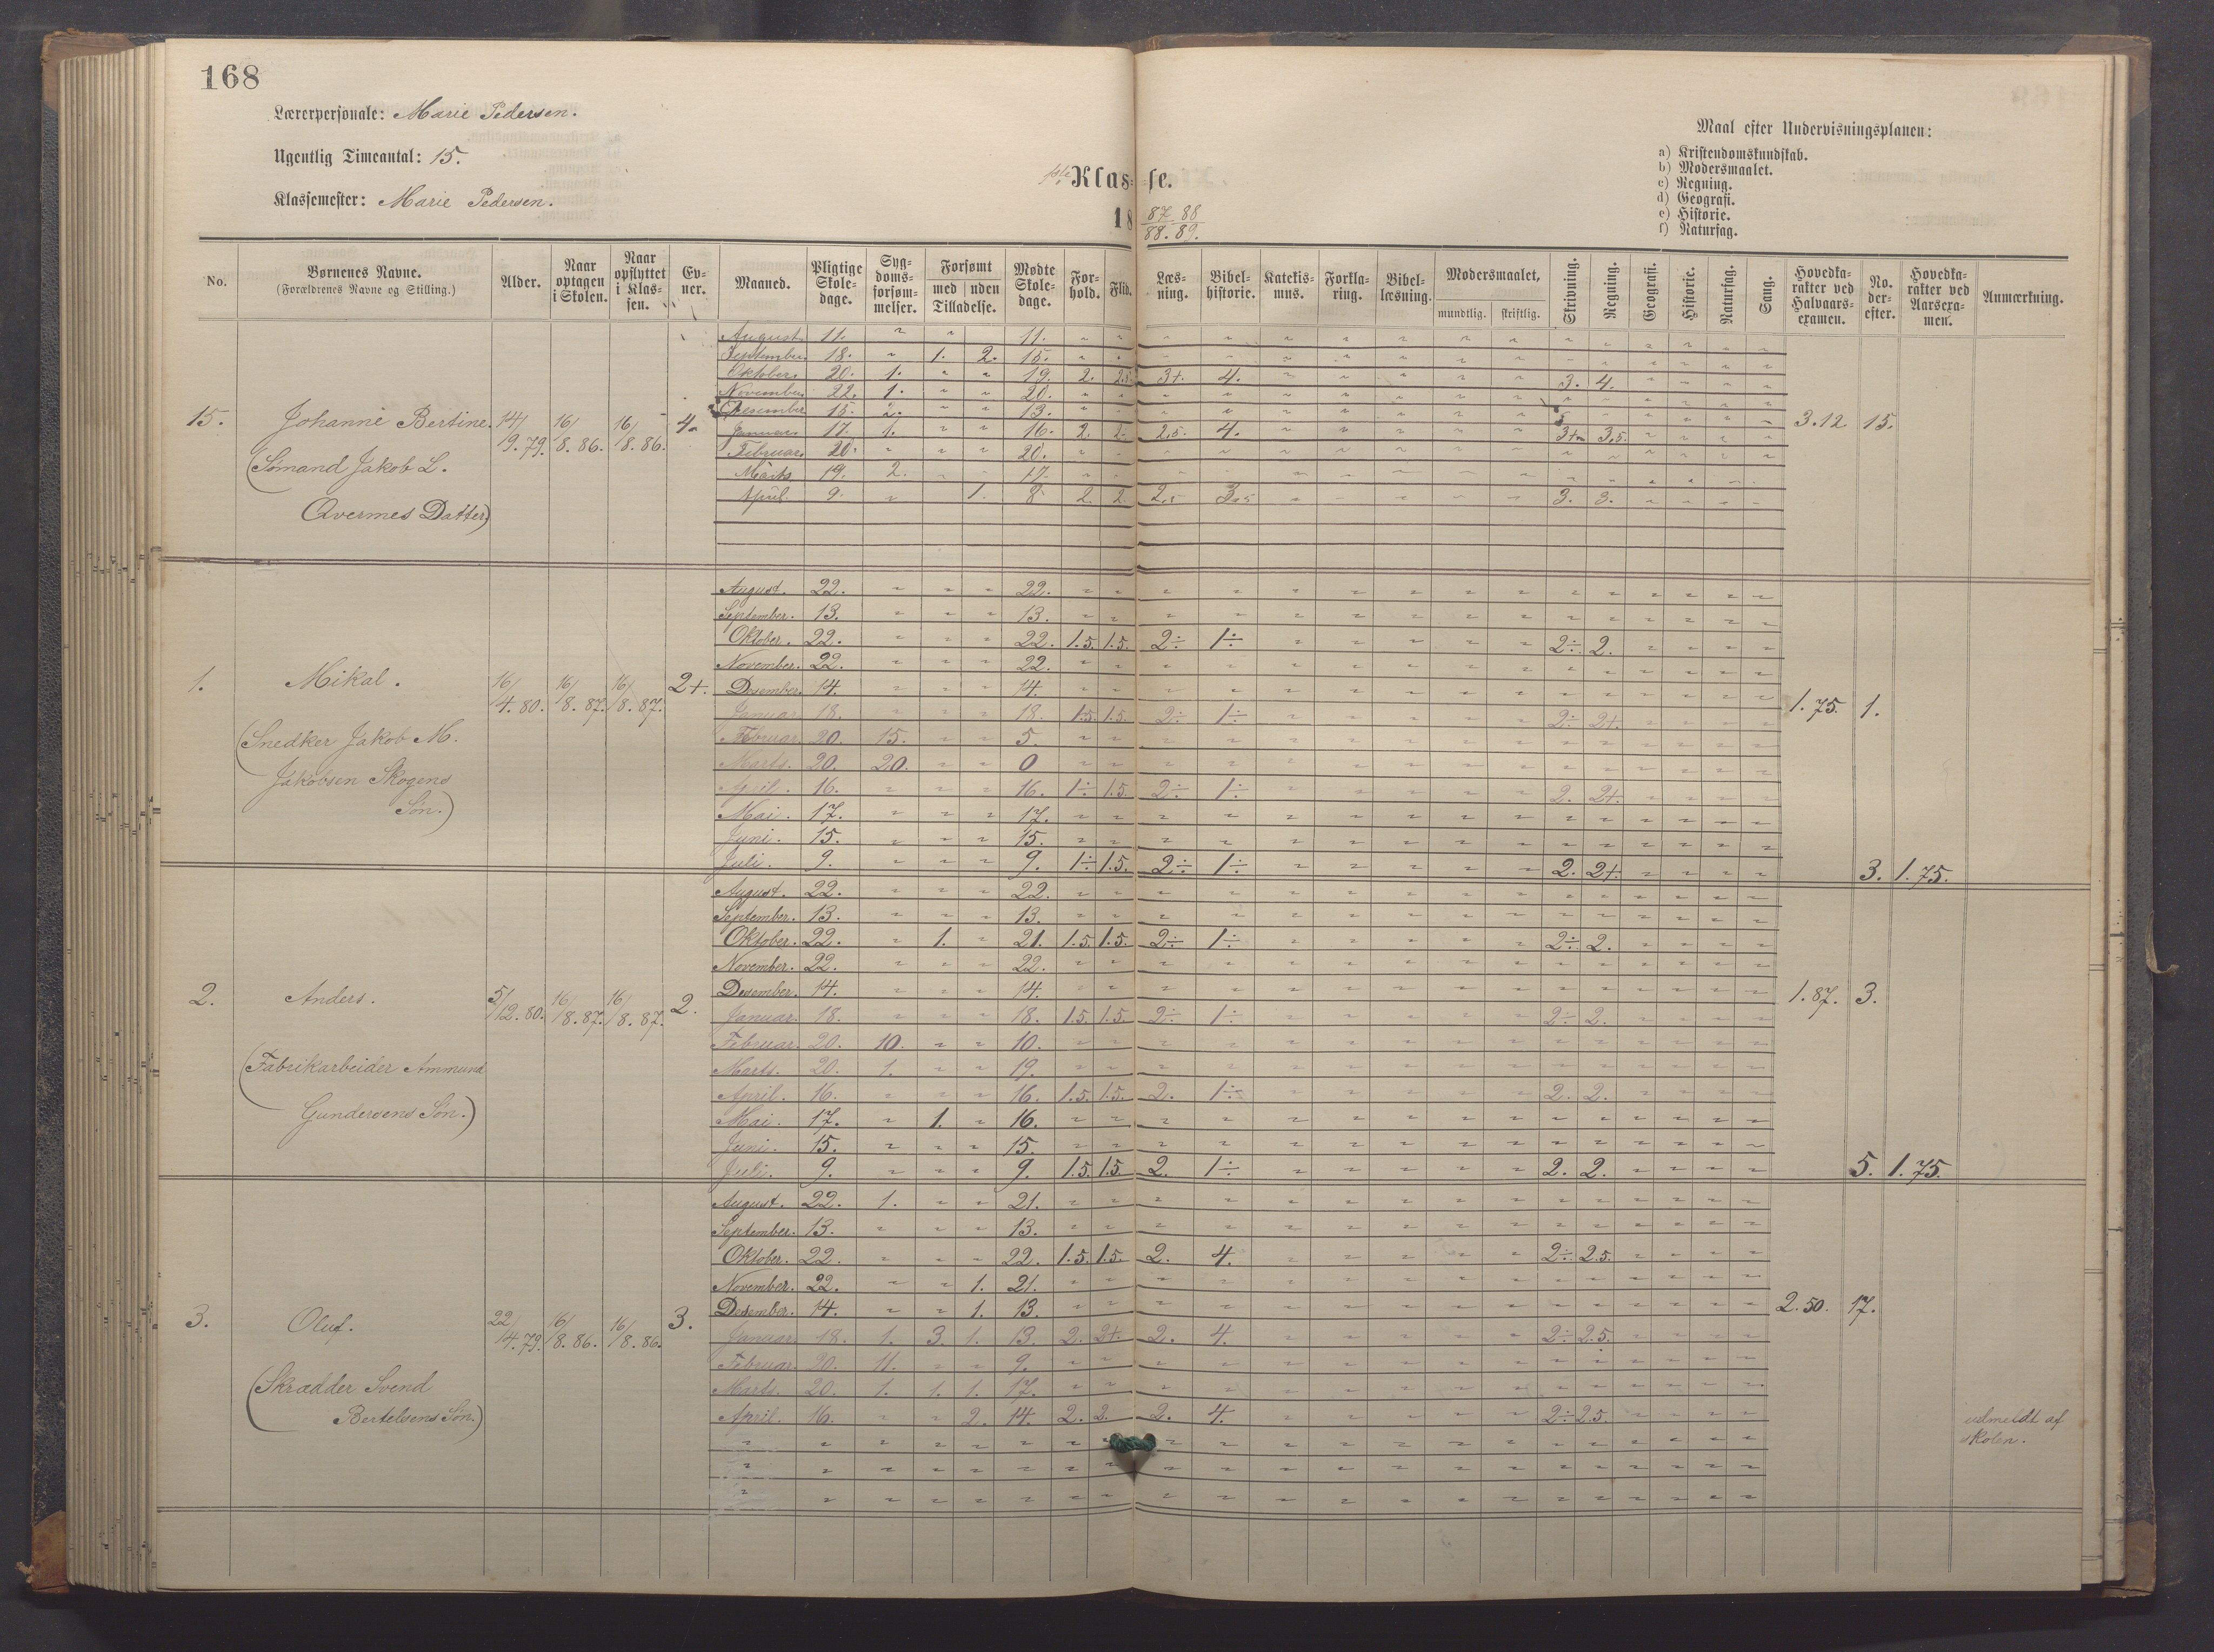 168
Lærerpersonale: Marie Pedersen.
Ugentlig Timeantal: 15.
Klassemester: Marie Pedersen.
1ste Klas-se.
18 87/88. 88/89.
Maal efter Undervisningsplanen:
a) Kristendomskundskab.
b) Modersmaalet.
c) Regning.
d) Geografi.
e) Historie.
f) Naturfag.
No. | Børnenes Navne. (Forældrenes Navne og Stilling.) | Alder. | Naar optagen i Skolen. | Naar opflyttet i Klas-sen. | Ev-ner. | Maaned. | Pligtige Skole-dage. | Syg-doms-forsøm-melser. | Forsømt med uden Tilladelse. | Mødte Skole-dage. | For-hold. | Flid. | Læs-ning. | Bibel-historie. | Katekis-mus. | Forkla-ring. | Bibel-læsning. | Modersmaalet, mundtlig. skriftlig. | Skrivning. | Regning. | Geografi. | Historie. | Naturfag. | Sang. | Hovedka-rakter ved Halvaars-examen. | No. der-efter. | Hovedka-rakter ved Aarsexa-men. | Anmærkning.
15. Johanne Bertine. 14/9.79. 16/8.86. 16/8.86. 4.
(Sømand Jakob L.
Qvermes Datter)
August. 11. " " 11. " "
September. 18. " 1. 2. 15. " "
Oktober. 20. 1. " " 19. 2. 2.5 3+. 4. " " " " " 3. 4. " " " "
November. 22. 1. " " 20. " "
Desember 15. 2. " " 13. " "
Januar. 17. 1. " " 16. 2. 2. 2.5. 4. " " " " " 3+ 3.5. " " " " 3.12 15.
Februar. 20. " " " 20. " "
Marts 19. 2. " " 17. " "
April. 9. " 1. 8 2. 2 2.5 3.5 " " " " " 3. 3. " " " "
1. Mikal. 16/4.80. 16/8.87. 16/8.87. 2+.
(Snedker Jakob M.
Jakobsen Skogens
Søn.)
August. 22. " " " 22. " "
September. 13. " " " 13. " "
Oktober. 22. " " " 22. 1.5. 1.5. 2÷ 1÷ " " " " " 2÷. 2. " " " "
November. 22. " " " 22. " "
Desember. 14. " " " 14. " "
Januar. 18. " " " 18. 1.5. 1.5. 2÷ 1÷ " " " " " 2÷ 2+. " " " " 1.75. 1.
Februar. 20. 15. " " 5. " "
Marts. 20. 20. " " 0 " "
April. 16. " " " 16. 1÷ 1.5. 2÷ 1÷ " " " " " 2. 2+. " " " "
Mai. 17. " " " 17. " "
Juni. 15. " " " 15. " "
Juli. 9. " " " 9. 1÷ 1.5. 2÷ 1÷ " " " " " 2. 2+. " " " " 3. 1.75.
2. Anders. 5/12.80. 16/8.87. 16/8.87. 2.
(Fabrikarbeider Ammund
Gundersens Søn.)
August. 22. " " " 22. " "
September. 13. " " " 13. " "
Oktober. 22. " 1. " 21. 1.5. 1.5. 2÷ 1÷ " " " " " 2÷. 2. " " " "
November. 22. " " " 22. " "
Desember. 14. " " " 14. " "
Januar. 18. " " " 18. 1.5. 1.5. 2÷ 1÷ " " " " " 2÷ 2. " " " " 1.87. 3.
Februar. 20. 10. " " 10. " "
Marts. 20. 1. " " 19. " "
April. 16. " " " 16. 1.5. 1.5. 2. 1÷ " " " " " 2. 2. " " " "
Mai. 17. " 1. " 16. " "
Juni. 15. " " " 15. " "
Juli. 9. " " " 9. 1.5. 1.5. 2. 1÷ " " " " " 2. 2. " " " " 5. 1.75.
3. Oluf. 22/4.79. 16/8.86. 16/8.86. 3.
(Skrædder Svend
Bertelsens Søn.)
August. 22. 1. " " 21. " "
September. 13. " " " 13. " "
Oktober. 22. " " " 22. 1.5. 1.5. 2. 4. " " " " " 2÷. 2.5. " " " "
November. 22. " " 1. 21. " "
Desember. 14. " " 1. 13. " " 2.50. 17.
Januar. 18. 1. 3. 1. 13. 2. 2+. 2. 4. " " " " " 2÷ 2.5. " " " "
Februar. 20. 11. " " 9. " "
Marts. 20. 1. 1. 1. 17. " "
April. 16. " " 2. 14. 2. 2. 2. 4. " " " " " 2÷ 2.5. " " " "
udmeldt af
skolen.